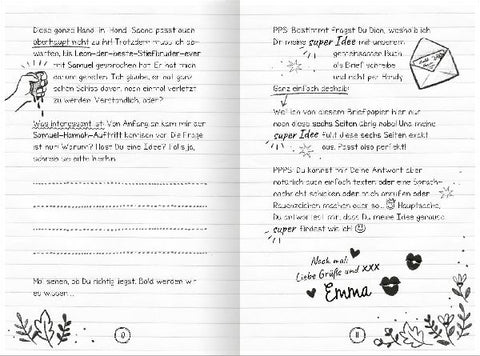 Diese ganze Hand-in-Hand-Szene passt auch
überhaupt nicht zu ihr! Trotzdem muss ich ab-
warten, bis Leon-der-beste-Stiefbruder-ever
mit Samuel gesprochen hat. Er hat mich
darum gebeten. Ich glaube, er hat ganz
schön Schiss davor, noch einmal verletzt
zu werden. Verständlich, oder?
Was interessant ist: Von Anfang an kam mir der
Samuel-Hannah-Auftritt komisch vor. Die Frage
ist nur: Warum? Hast Du eine Idee? Falls ja,
schreib sie bitte hierhin:
Mal sehen, ob Du richtig liegst. Bald werden wir
es wissen ...
PPS: Bestimmt fragst Du Dich, weshalb ich
Dir meine super Idee mit unserem
gemeinsamen Buch
als Brief schreibe
und nicht per Handy.
Ganz einfach deshalb:
Weil ich von diesem Briefpapier hier nur
noch diese sechs Seiten übrig habe! Und meine
super Idee füllt diese sechs Seiten exakt
aus. Passt also perfekt!
PPPS: Du kannst mir Deine Antwort aber
natürlich auch einfach texten oder eine Sprach-
nachricht schicken oder mich anrufen oder
Rauchzeichen machen oder so... Hauptsache,
Du antwortest mir, dass Du meine Idee genauso
super findest wie ich!
Noch mal:
Liebe Grüße und xxx
Emma
11